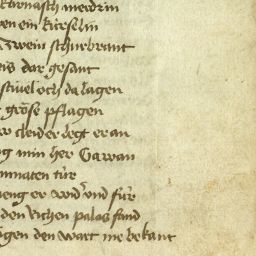 harnasch werdrin
en ein kürselin
zwein schurbrant
eis dar gesant
stiuel och da lagen
grose pflagen
cleider legt er an
g min her Gawan
minnaten tür
ieng er wider und für
den richen palas fand
ögen den wart nie bekant